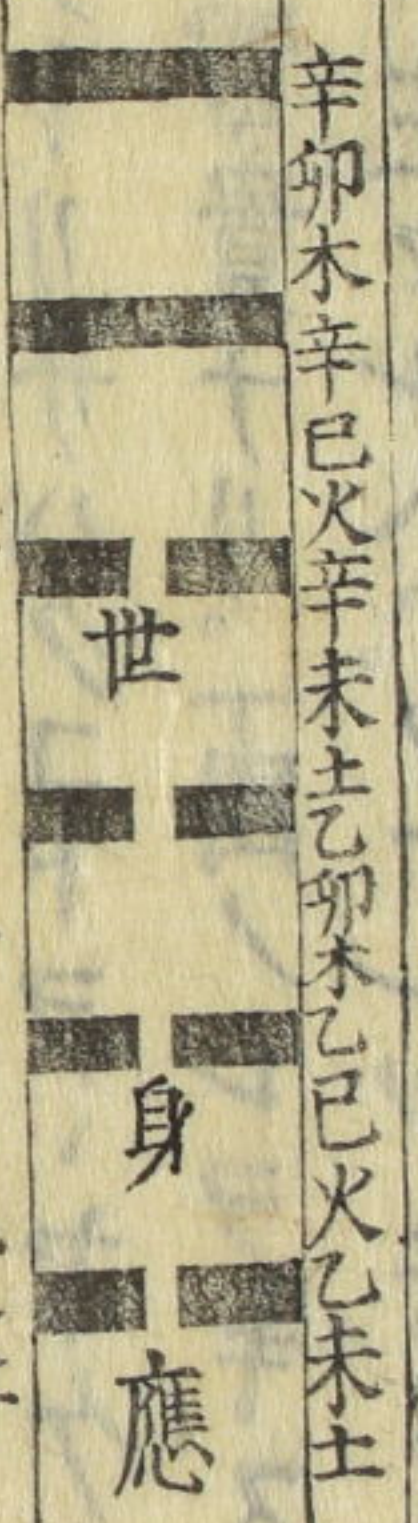 辛卯木辛巳火辛未土乙卯木乙巳火乙未土
世
身
應